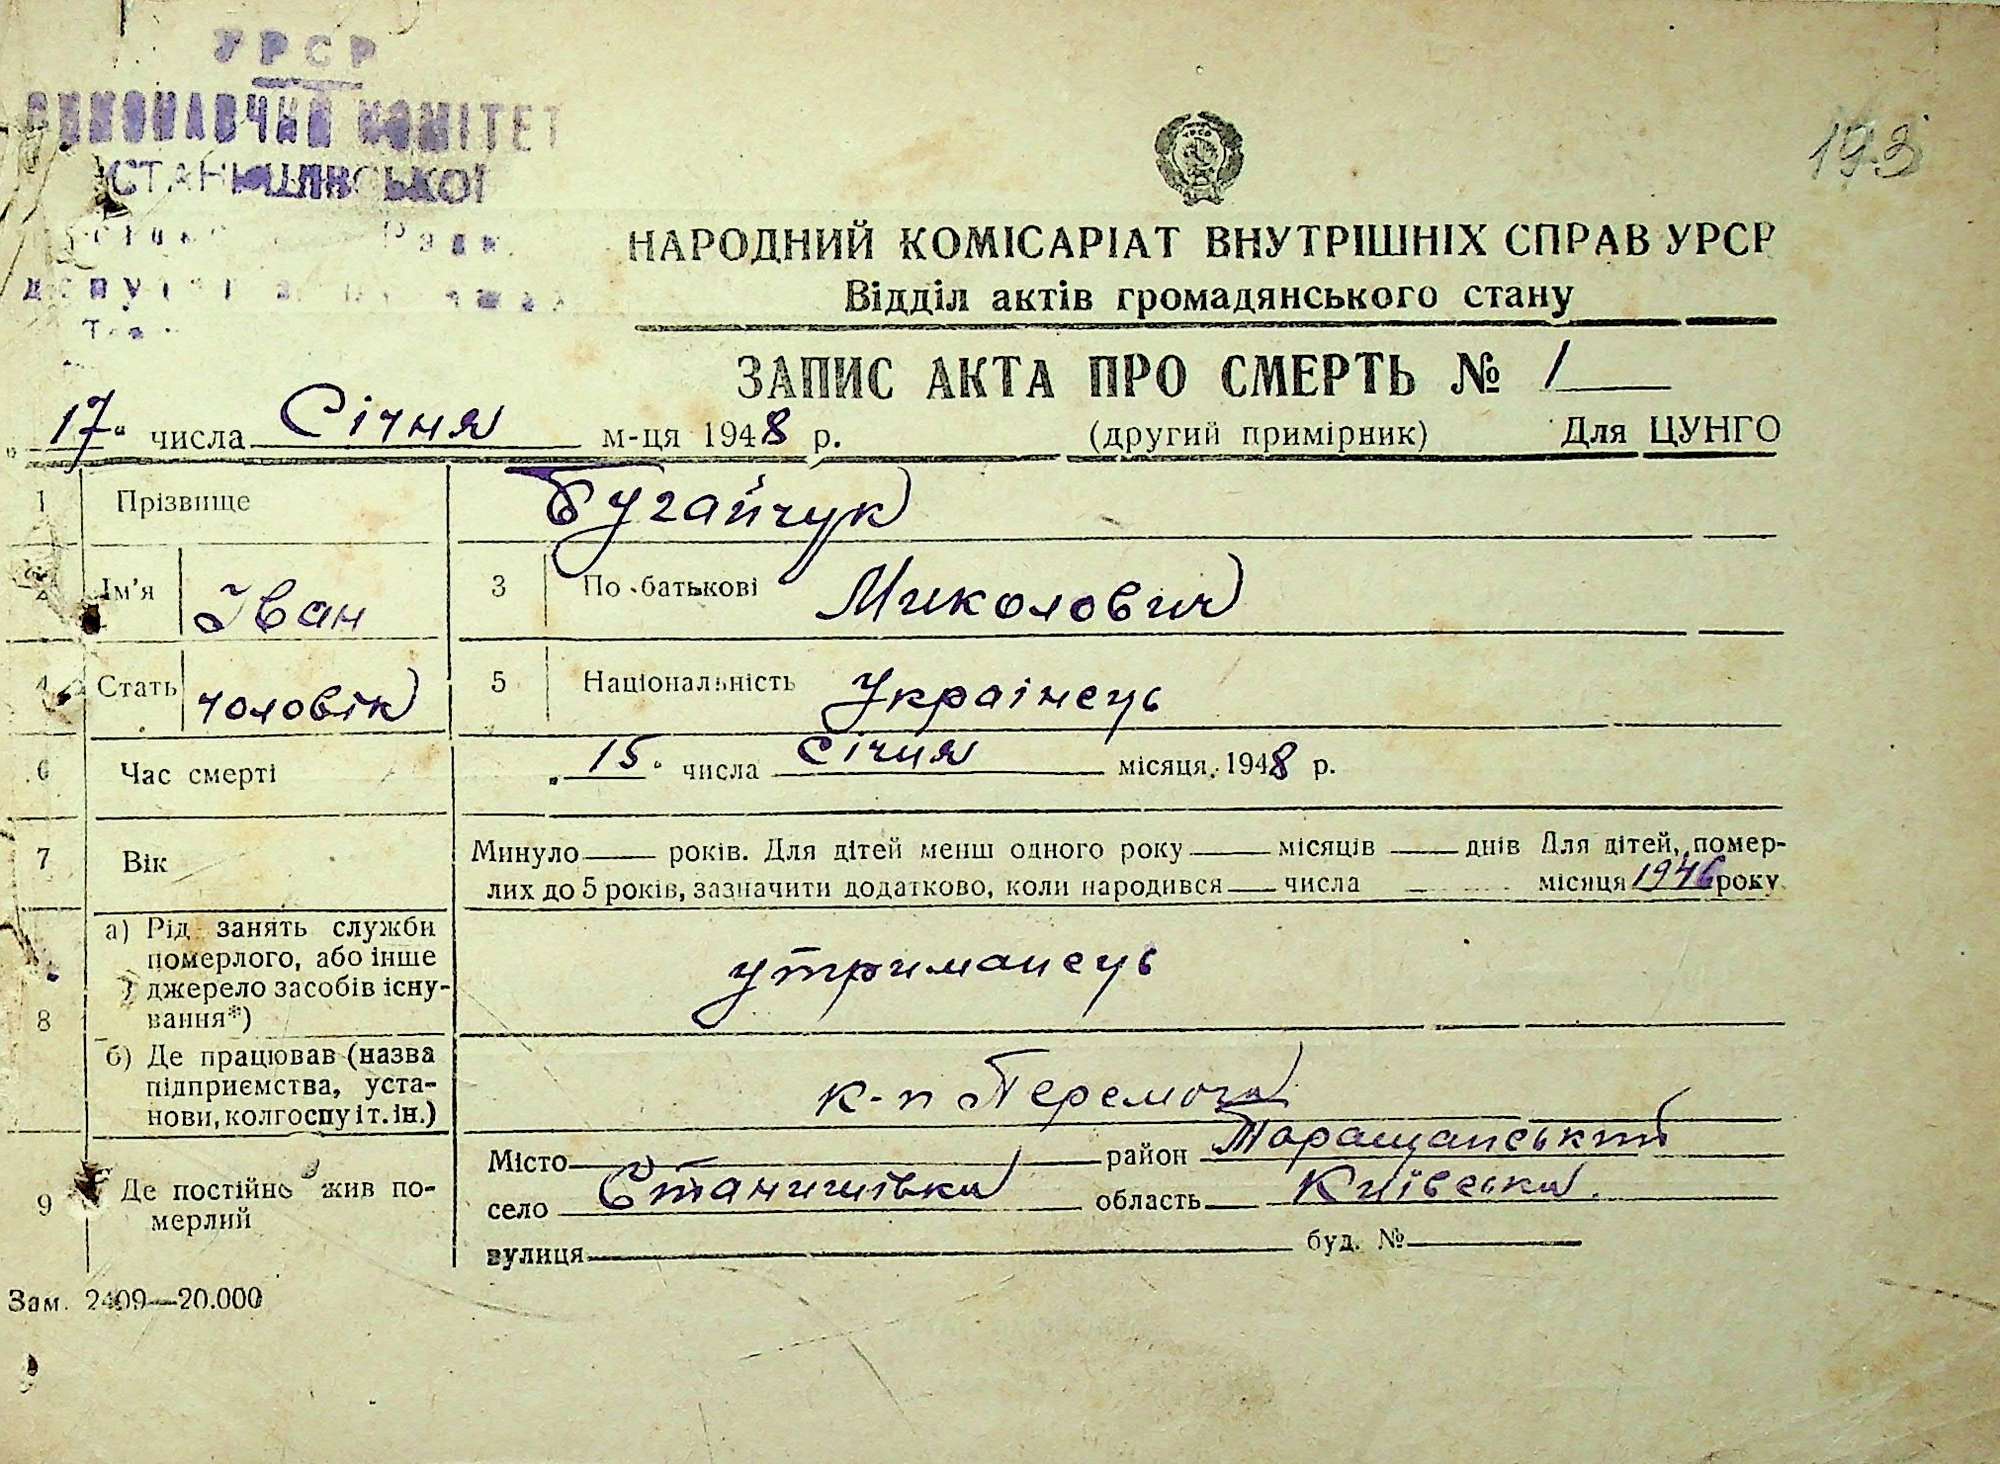 УРСР
ВИКОНАВЧИЙ КОМІТЕТ
СТАНИШІВСЬКОЇ
193
НАРОДНИЙ КОМІСАРІАТ ВНУТРІШНІХ СПРАВ УРСР
Відділ актів громадянського стану
ЗАПИС АКТА ПРО СМЕРТЬ № 1
„17“ числа Січня м-ця 1948 р. (другий примірник) Для ЦУНГО
1 Прізвище Бугайчук
2 Ім'я Іван 3 По батькові Миколович
4 Стать чоловік 5 Національність Українець
6 Час смерті „15“ числа січня місяця 1948 р.
7 Вік Минуло років. Для дітей менш одного року місяців днів Для дітей, помер-
лих до 5 років, зазначити додатково, коли народився числа місяця 1946 року
8 а) Рід занять служби
померлого, або інше
джерело засобів існу-
вання*) утриманець
б) Де працював (назва
підприємства, уста-
нови, колгоспу і т. ін.) к-п Перемога
9 Де постійно жив по-
мерлий
Місто район Таращанський
село Станишівка область Київська.
вулиця буд. №
Зам. 2409—20.000